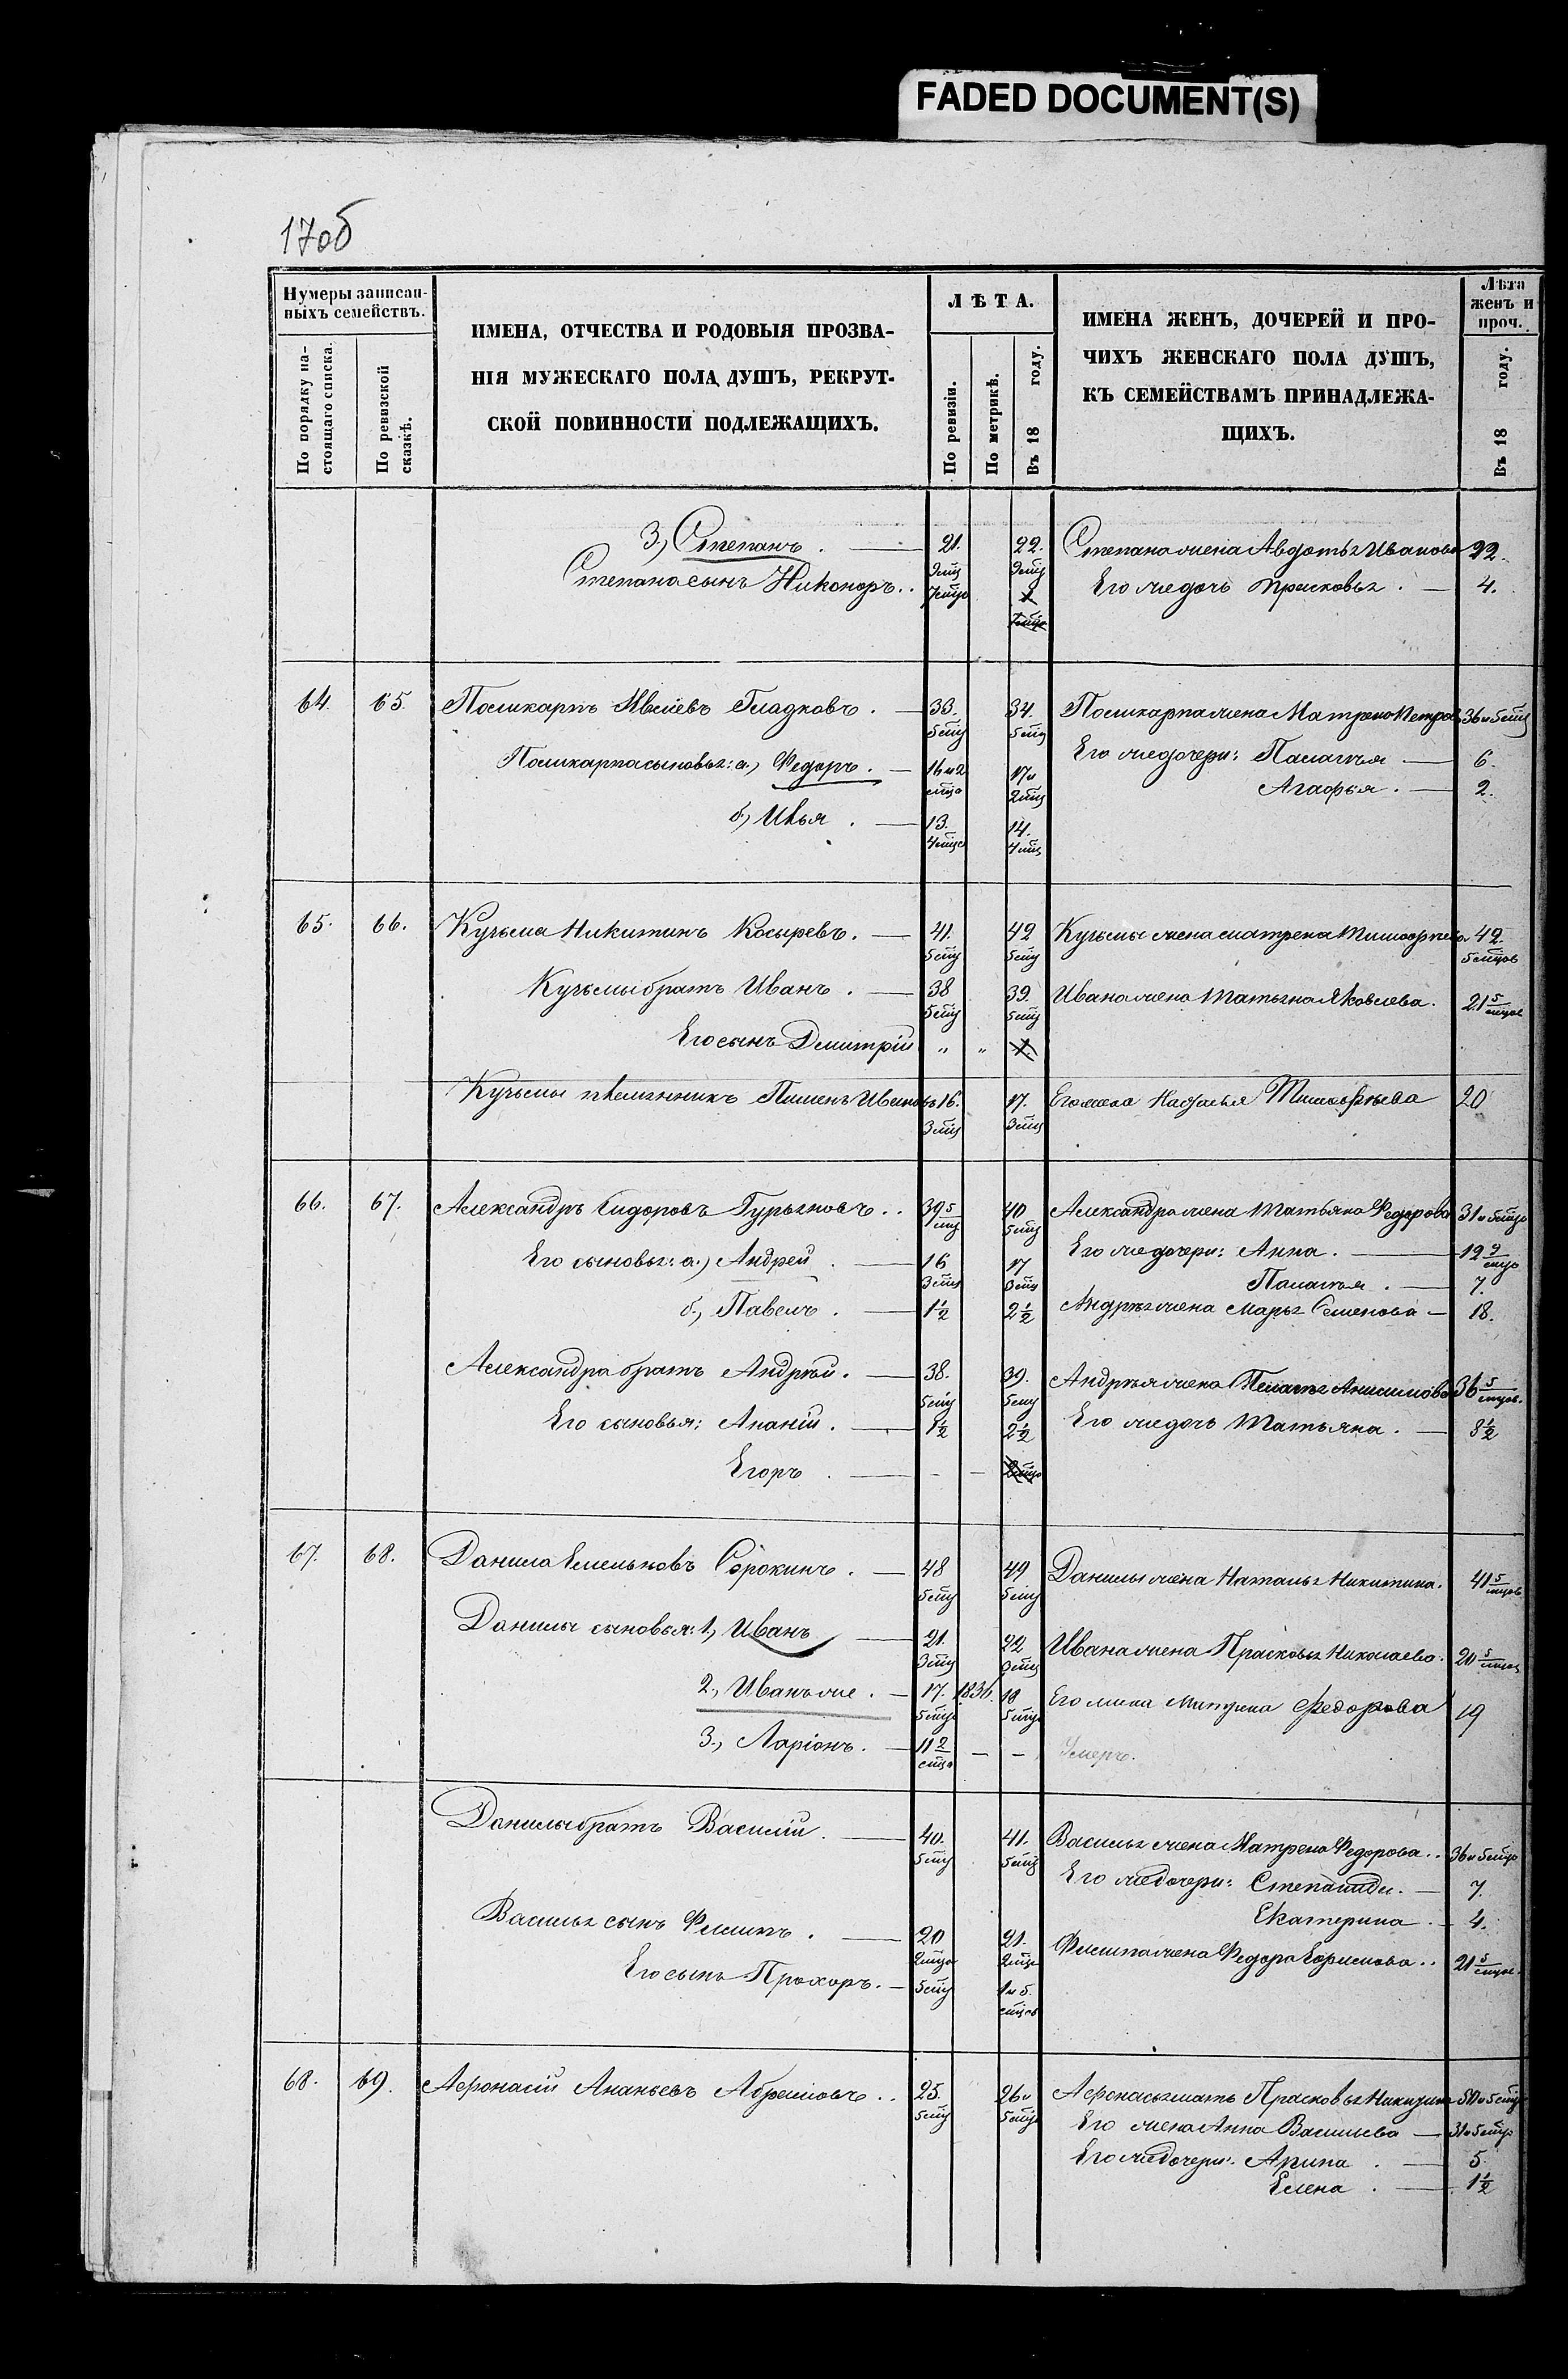 FADED DOCUMENT(S)
17об
Нумеры записан-
ныхъ семействъ.
По порядку на-
стоящаго списка.
По ревизской
сказкѣ.
ИМЕНА, ОТЧЕСТВА И РОДОВЫЯ ПРОЗВА-
НІЯ МУЖЕСКАГО ПОЛА ДУШЪ, РЕКРУТ-
СКОЙ ПОВИННОСТИ ПОДЛЕЖАЩИХЪ.
ЛѢТА.
По ревизіи.
По метрикѣ.
Въ 18 году.
ИМЕНА ЖЕНЪ, ДОЧЕРЕЙ И ПРО-
ЧИХЪ ЖЕНСКАГО ПОЛА ДУШЪ,
КЪ СЕМЕЙСТВАМЪ ПРИНАДЛЕЖА-
ЩИХЪ.
Лѣта
женъ и
проч.
Въ 18 году.
3, Степанъ . 21. 22. Степана жена Авдотья Иванова 22.
Степана сынъ Никоноръ . . 1 Его же дочь Прасковья . 4.
64. 65. Поликарпъ Гладковъ . 33. 34. Поликарпа жена Матрена Петров 36 и 5
Поликарпа сыновья: а, Федоръ . 16 и 2 17 и Его же дочери: Палагъя 6.
Агафья . 2.
б, Илья . 13. 14.
65. 66. Кузьма Никитинъ Косыревъ . 41. 42 Кузьмы жена Матрена Тимофеева 42.
Кузьмы братъ Иванъ . 38 39. Ивана жена Татьяна Яковлева . 21 5
Его сынъ Дмитрій " " 1.
Кузьмы племянникъ Пименъ Ивановъ 16. 17. Его жена Наталья Тимофѣева 20
66. 67. Александръ Сидоровъ Гурьяновъ . . 39 5 40 Александра жена Татьяна Федорова 31 и 5
Его сыновья: а.) Андрей . 16 17 Его же дочери: Анна . 19
Палагъя . 7.
б, Павелъ . 1½ 2½ Андрея жена Марья Семенова 18.
Александра братъ Андрѣй . 38. 39. Андрѣя жена Пелагѣя Анисимова 36 5
Его сыновья: Ананій . 1½ 2½ Его же дочь Татьяна . 8½
Егоръ .
67. 68. Данила Емельяновъ Сорокинъ . 48 49 Данилы жена Наталья Никитина . 41 5
Данилы сыновья: 1, Иванъ 21. 22 Ивана жена Прасковья Николаева . 20 5
2, Иванъ же . 17. 1836 18 Его жена Матрена Федорова 19
3, Ларіонъ . 11 2 Умеръ.
Данилы братъ Василій . 40. 41. Василья жена Матрена Федорова . . 36 и 5
Его же дочери: Степанида . 7.
Екатерина . 4.
Василья сынъ Филипъ . 20 21. Филипа жена Федора . . 21 5
Его сынъ Прохоръ . 5 1 и 5.
68. 69. Афонасій Ананьевъ Абрамовъ . . 25. 26 и Афонасья мать Прасковья
Его жена Анна Васильева 31 и 5
Его же дочери: Арина . 5
Елена . 1½